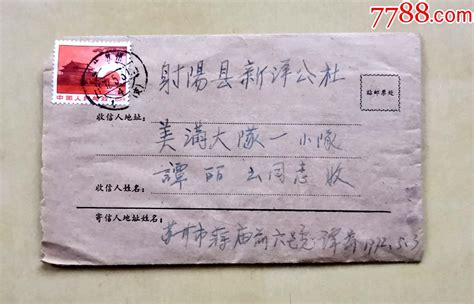 7788.com
中国人民邮政
射陽县新洋公社
贴邮票处
收信人地址：
美满大隊一小隊
譚丽 同志收
收信人姓名：
寄信人地址姓名：
市 庙前六 号譚 1972.5.3